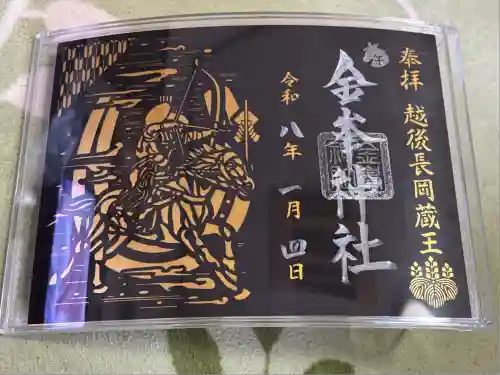 奉拝 越後長岡蔵王
午
金峯神社
令和八年 一月 四日